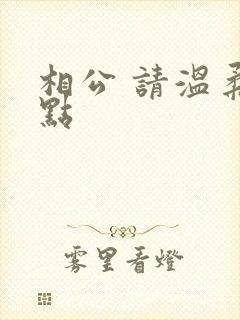 相公 請溫柔
點
雾里看燈